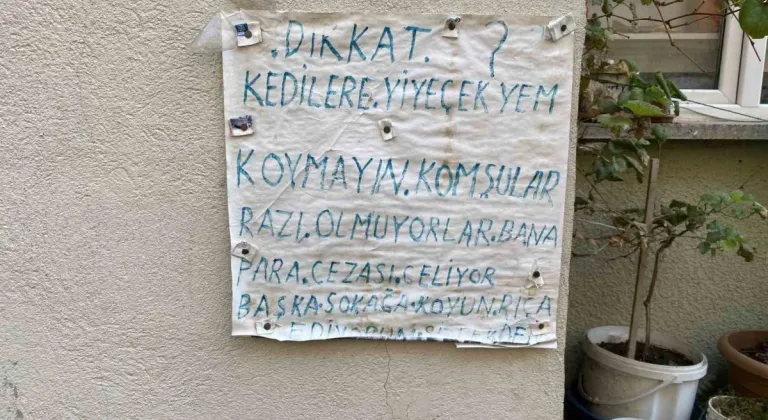 .DİKKAT. ?
KEDİLERE.YİYEÇEK YEM
KOYMAYIN.KOMŞULAR
RAZI.OLMUYORLAR.BANA
PARA.CEZASI.GELİYOR
BAŞKA.SOKAĞA.KOYUN.RİCA
EDİYORUM